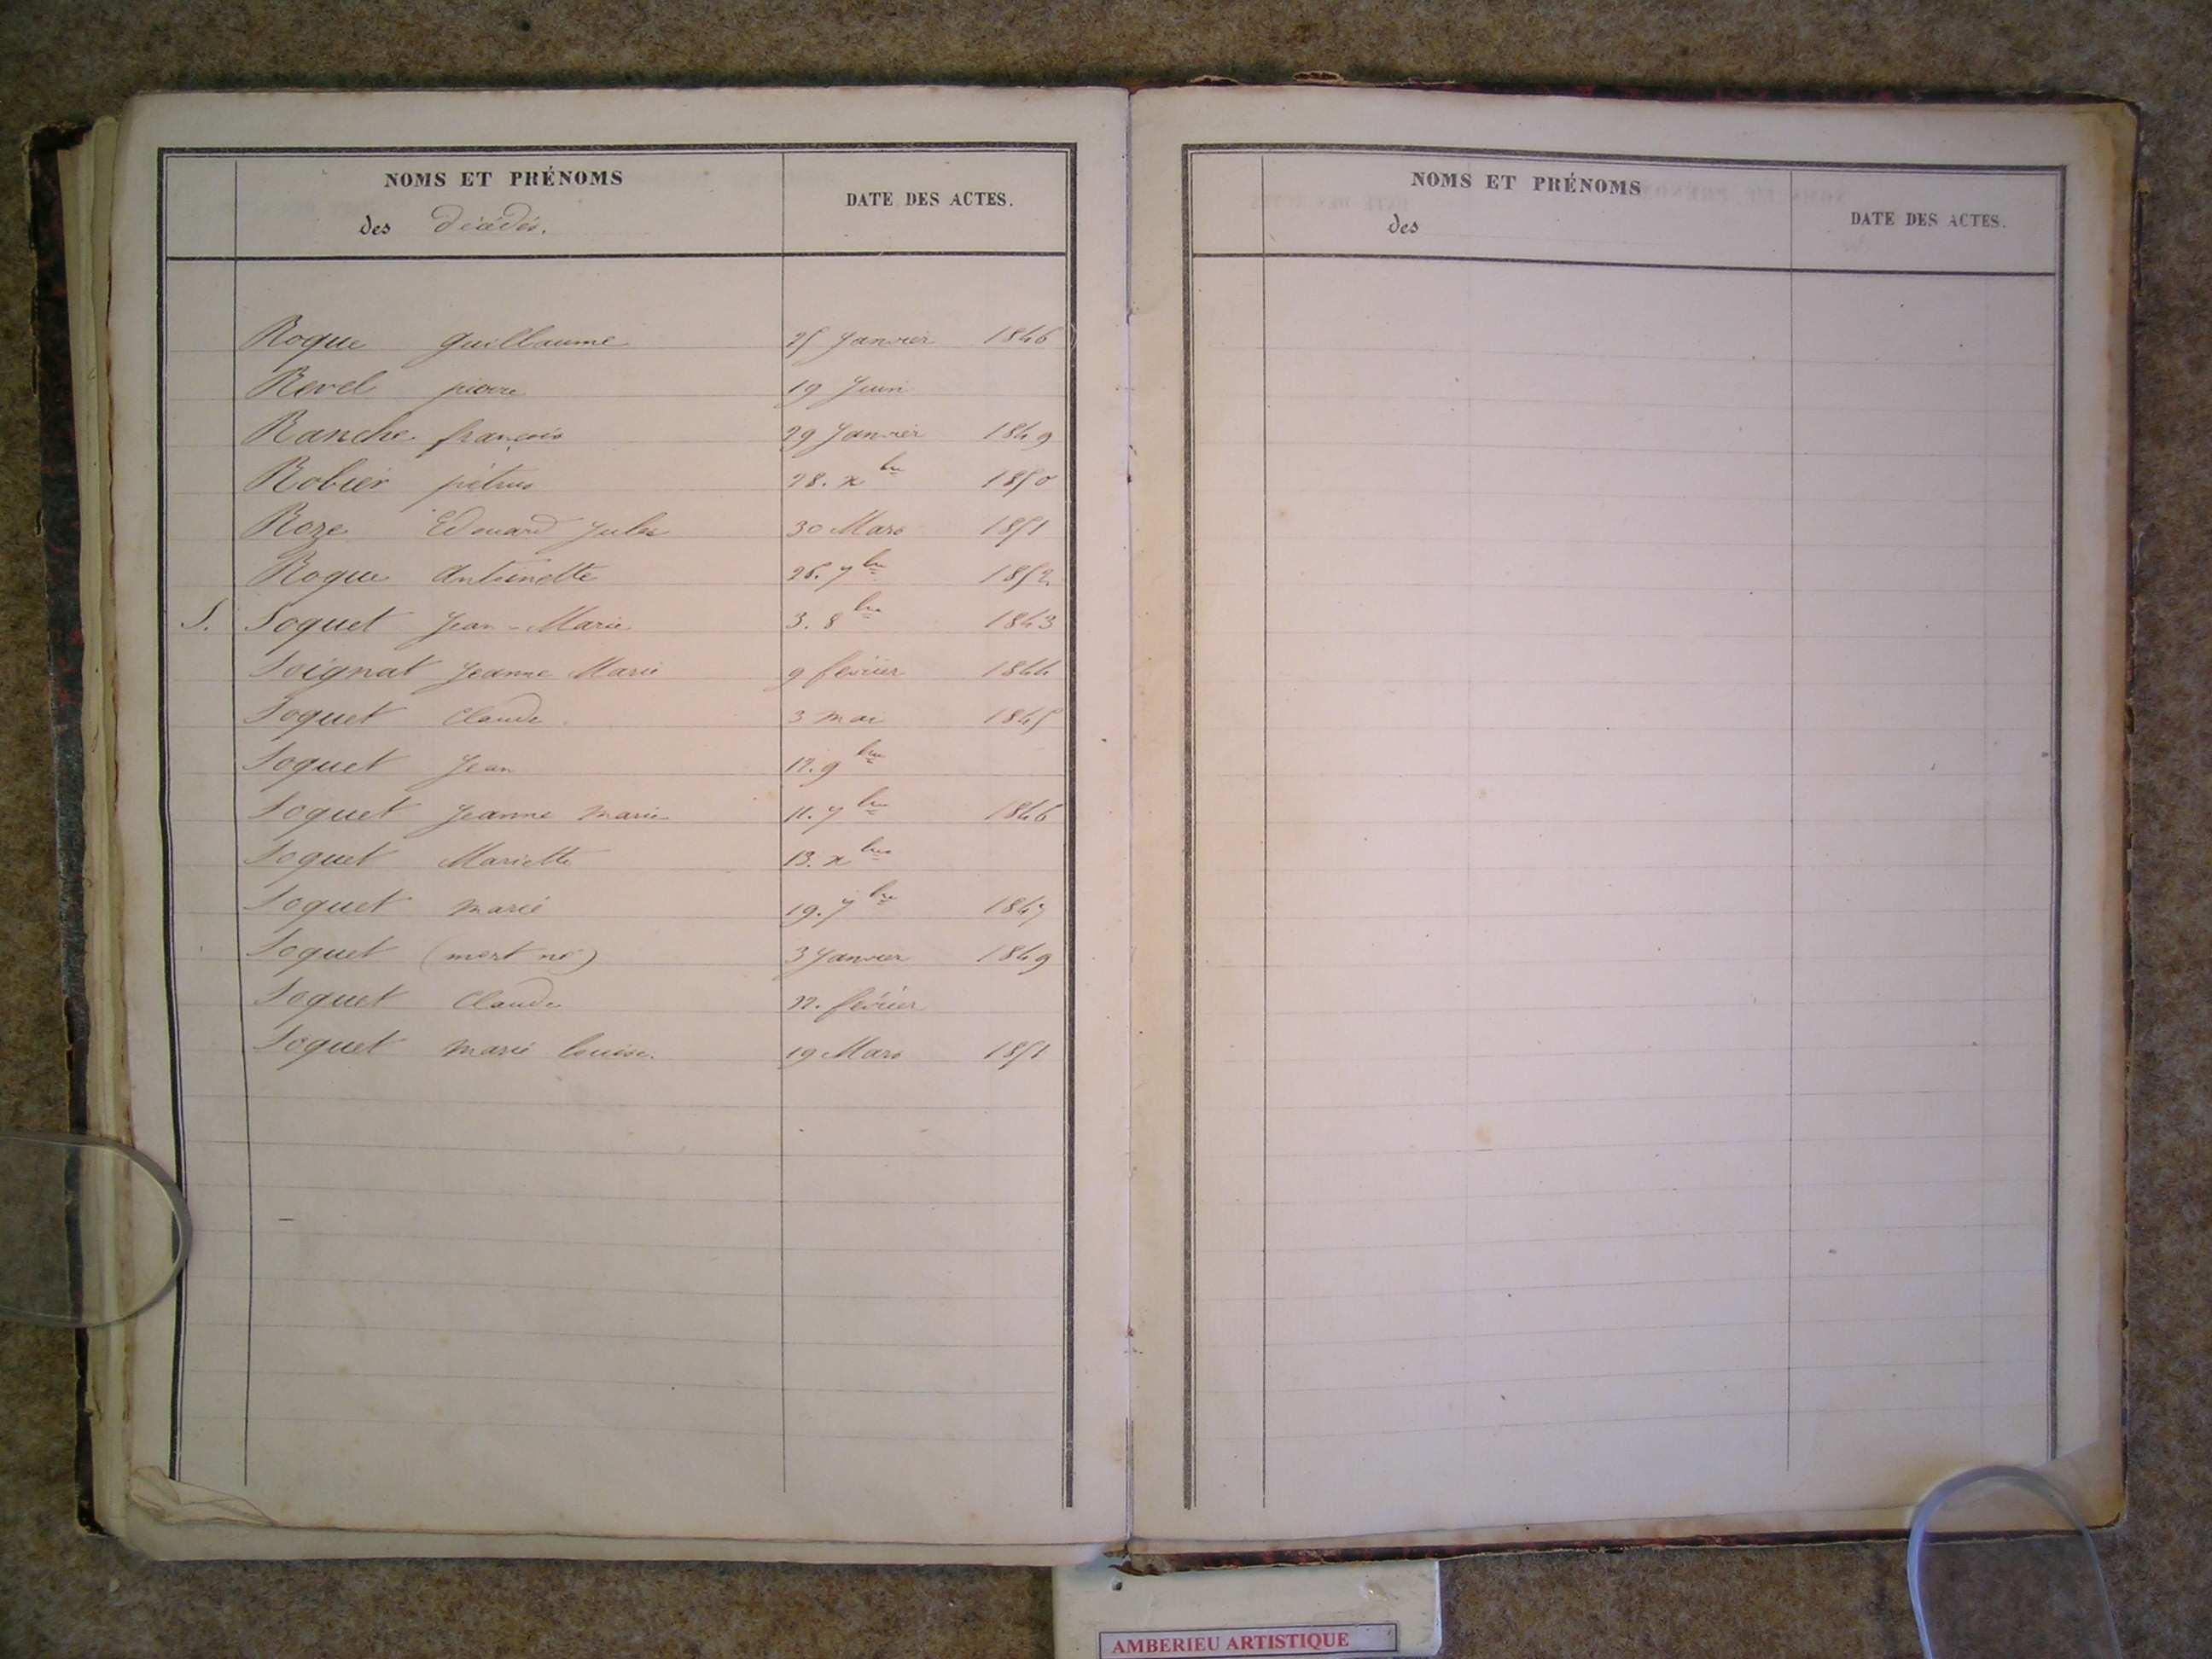 NOMS ET PRÉNOMS
des décédés.
DATE DES ACTES.
Roque Guillaume 25 Janvier 1846
Revel pierre 19 Juin
Ranche françois 29 Janvier 1849
Robier pétrus 28. xbre 1850
Roze Edouard Jules 30 Mars 1851
Roque Antoinette 26. 7bre 1852
S. Soquet Jean-Marie 3. 8bre 1843
Soignat Jeanne Marie 9 février 1844
Soquet Claude 3 mai 1845
Soquet Jean 12. 9bre
Soquet Jeanne marie 11. 7bre 1846
Soquet Mariette 13. xbre
Soquet marie 19. 7bre 1847
Soquet (mort né) 3 Janvier 1849
Soquet Claude 22. février
Soquet marie louise. 19 Mars 1851
NOMS ET PRÉNOMS
des
DATE DES ACTES.
AMBERIEU ARTISTIQUE